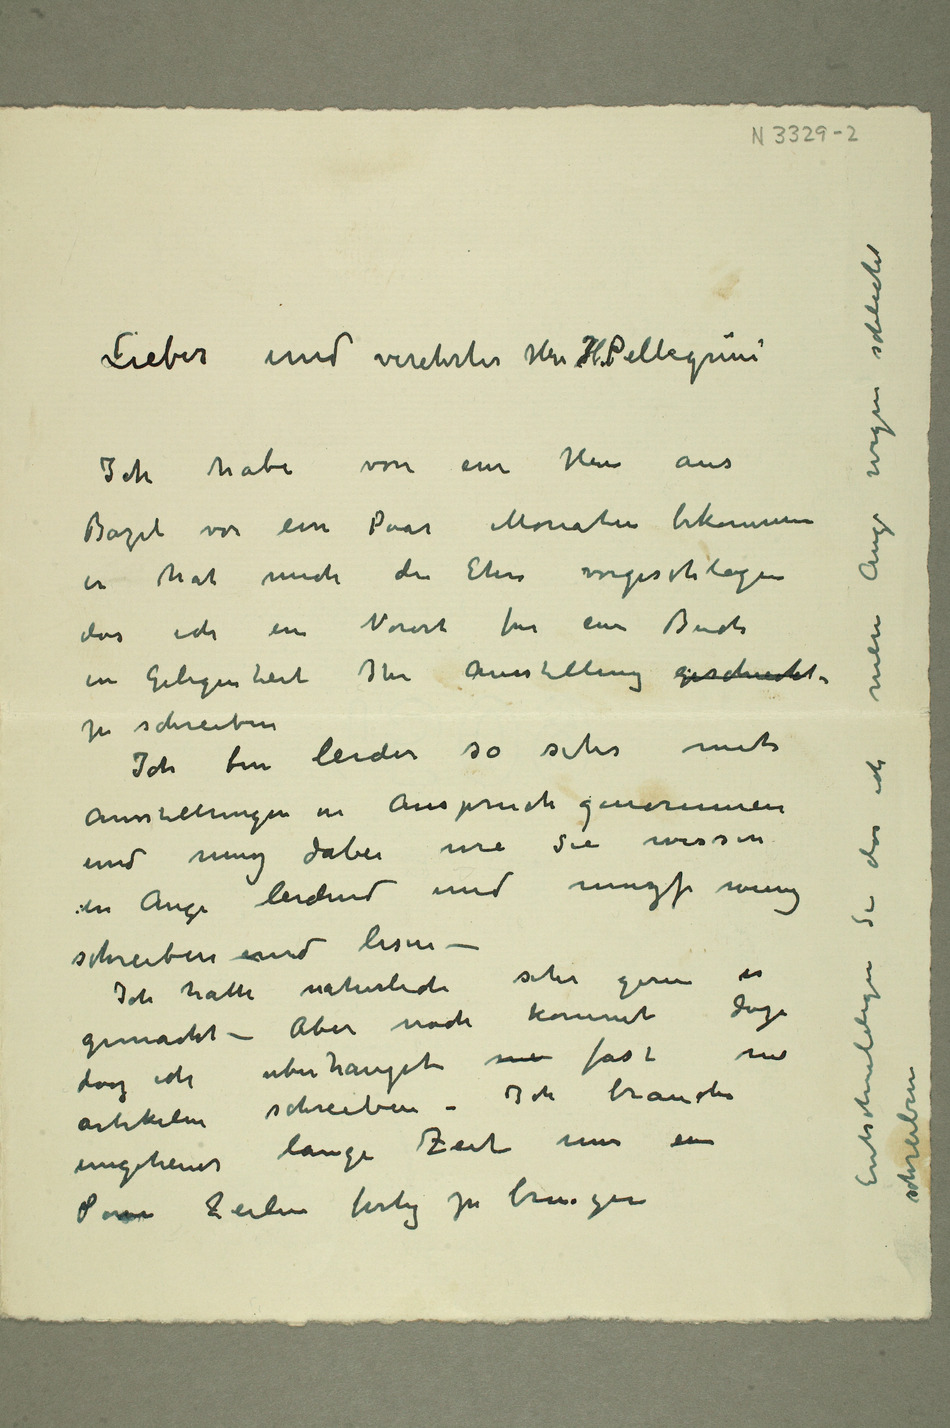 N 3329-2
Lieber und verehrter Herr H. Pellegrini
Ich habe von ein Herr aus
Bazel vor ein Paar Monaten bekommen
er hat mich die Ehre vorgeschlagen
das ich ein Vorort fur ein Buch
in Gelegenheit Ihr Ausstellung geschickt
zu schreiben
Ich bin leider so sehr mit
Ausstellungen in Anspruch genommen
und dabei wie Sie wissen
in Auge leidend und wenig
schreiben und lesen —
Ich hatte naturlich sehr gern es
gemacht — Aber noch kommt dazu
daz ich uberhaupt fast nie
artikeln schreiben - Ich brauche
ungeheuer lange Zeit um ein
Paar Zeilen fertig zu bringen
Entschuldigen Sie das ich mein Auge wegen schlecht
schreiben